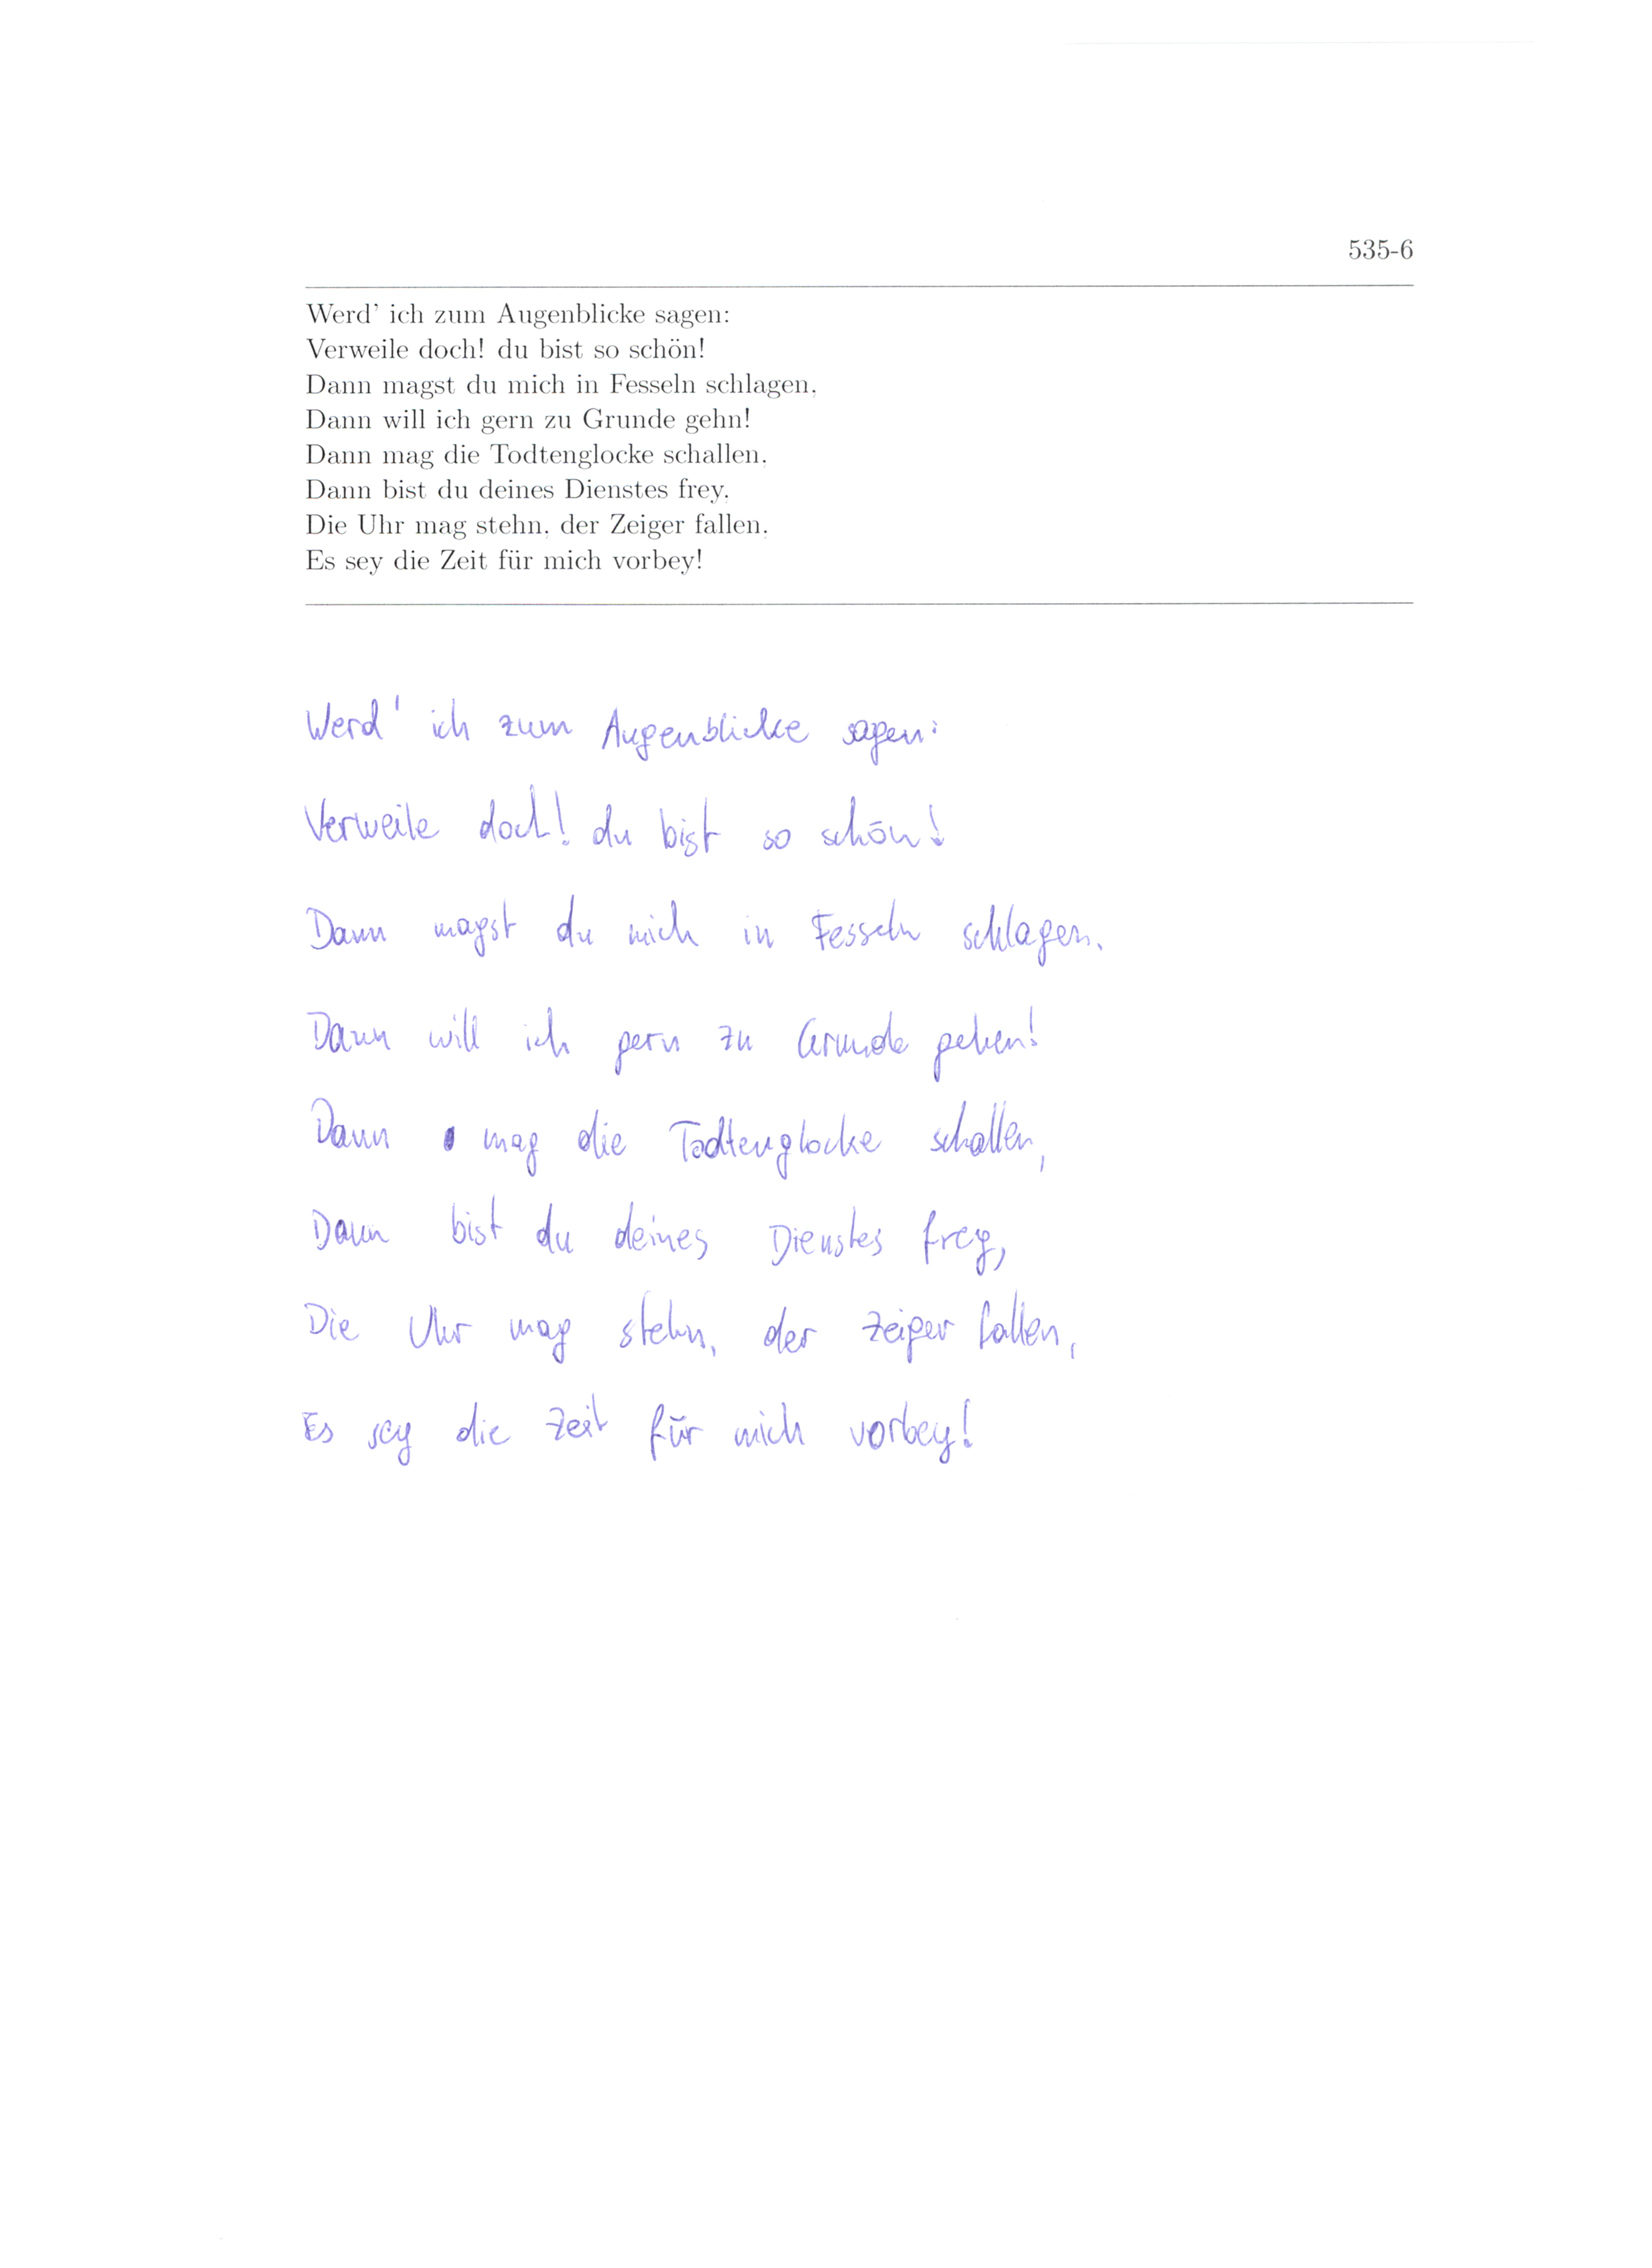 535-6
Werd' ich zum Augenblicke sagen:
Verweile doch! du bist so schön!
Dann magst du mich in Fesseln schlagen,
Dann will ich gern zu Grunde gehn!
Dann mag die Todtenglocke schallen,
Dann bist du deines Dienstes frey,
Die Uhr mag stehn, der Zeiger fallen,
Es sey die Zeit für mich vorbey!
Werd' ich zum Augenblicke sagen:
Verweile doch! du bist so schön!
Dann magst du mich in Fesseln schlagen,
Dann will ich gern zu Grunde gehen!
Dann mag die Todtenglocke schallen,
Dann bist du deines Dienstes frey,
Die Uhr mag stehn, der Zeiger fallen,
Es sey die Zeit für mich vorbey!